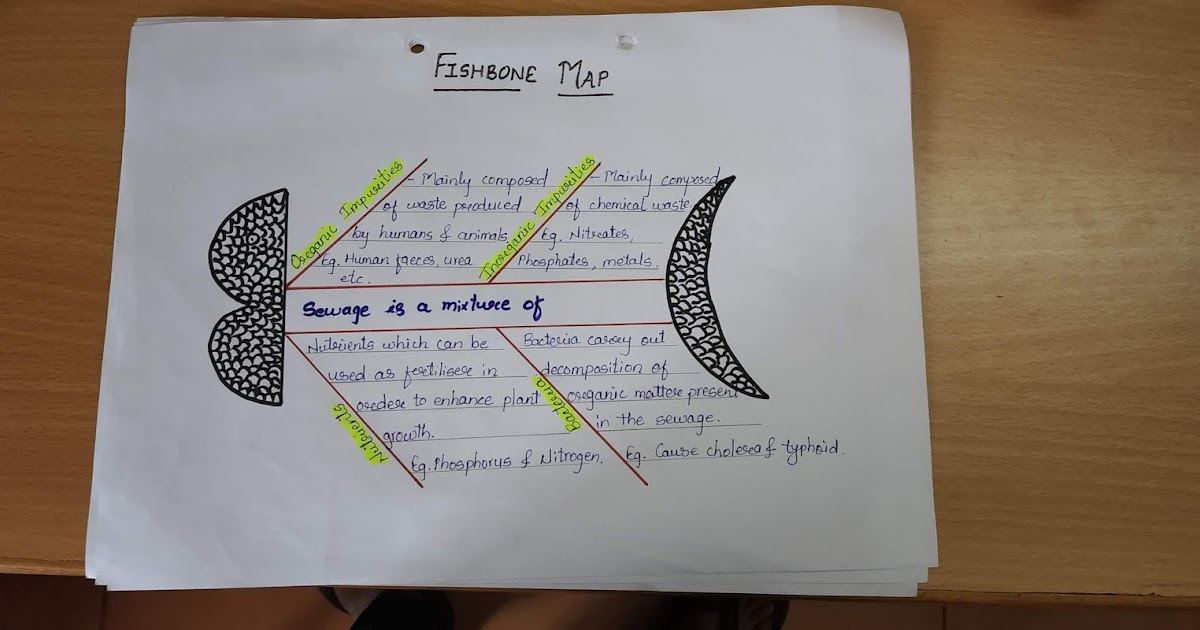 FISHBONE MAP
Organic Impurities
- Mainly composed
of waste produced
by humans & animals
Eg. Human faeces, urea
etc.
Inorganic Impurities
- Mainly composed
of chemical waste.
Eg. Nitrates,
Phosphates, metals.
Sewage is a mixture of
Nutrients
Nutrients which can be
used as fertiliser in
order to enhance plant
growth.
Eg. Phosphorus & Nitrogen.
Bacteria
Bacteria carry out
decomposition of
organic matter present
in the sewage.
Eg. Cause cholera & typhoid.